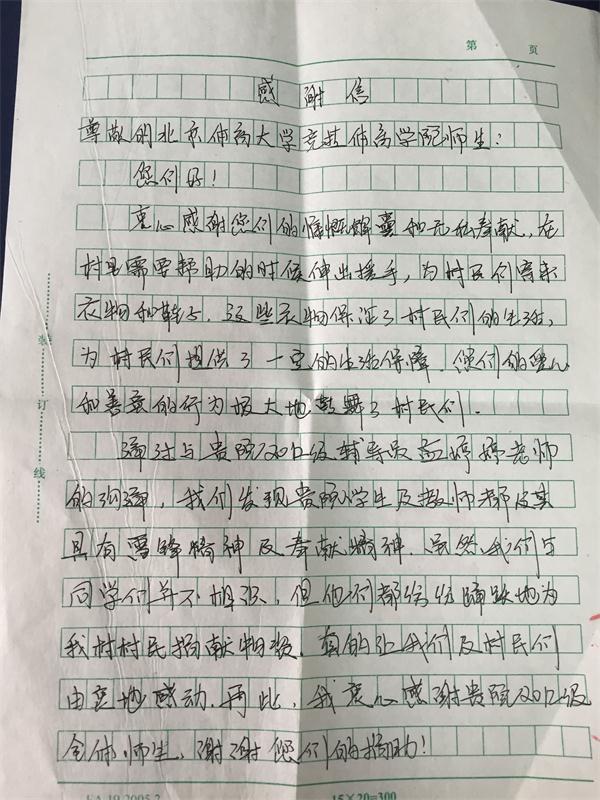 第 页
感谢信
尊敬的北京体育大学竞技体育学院师生：
您们好！
衷心感谢您们的慷慨解囊和无私奉献，在
村里需要帮助的时候伸出援手，为村民们寄来
衣物和鞋子，这些衣物保证了村民们的生活，
为村民们提供了一定的生活保障．您们的爱心
和善意的行为极大地鼓舞了村民们．
通过与贵院2012级辅导员 婷婷老师
的沟通，我们发现贵院学生及教师都极其
具有雷锋精神及奉献精神．虽然我们与
同学们并不相识，但他们都纷纷踊跃地为
我村村民捐献物资．真的让我们及村民们
由衷地感动．再此，我衷心感谢贵院2012级
全体师生，谢谢您们的捐助！
装订线
15×20=300